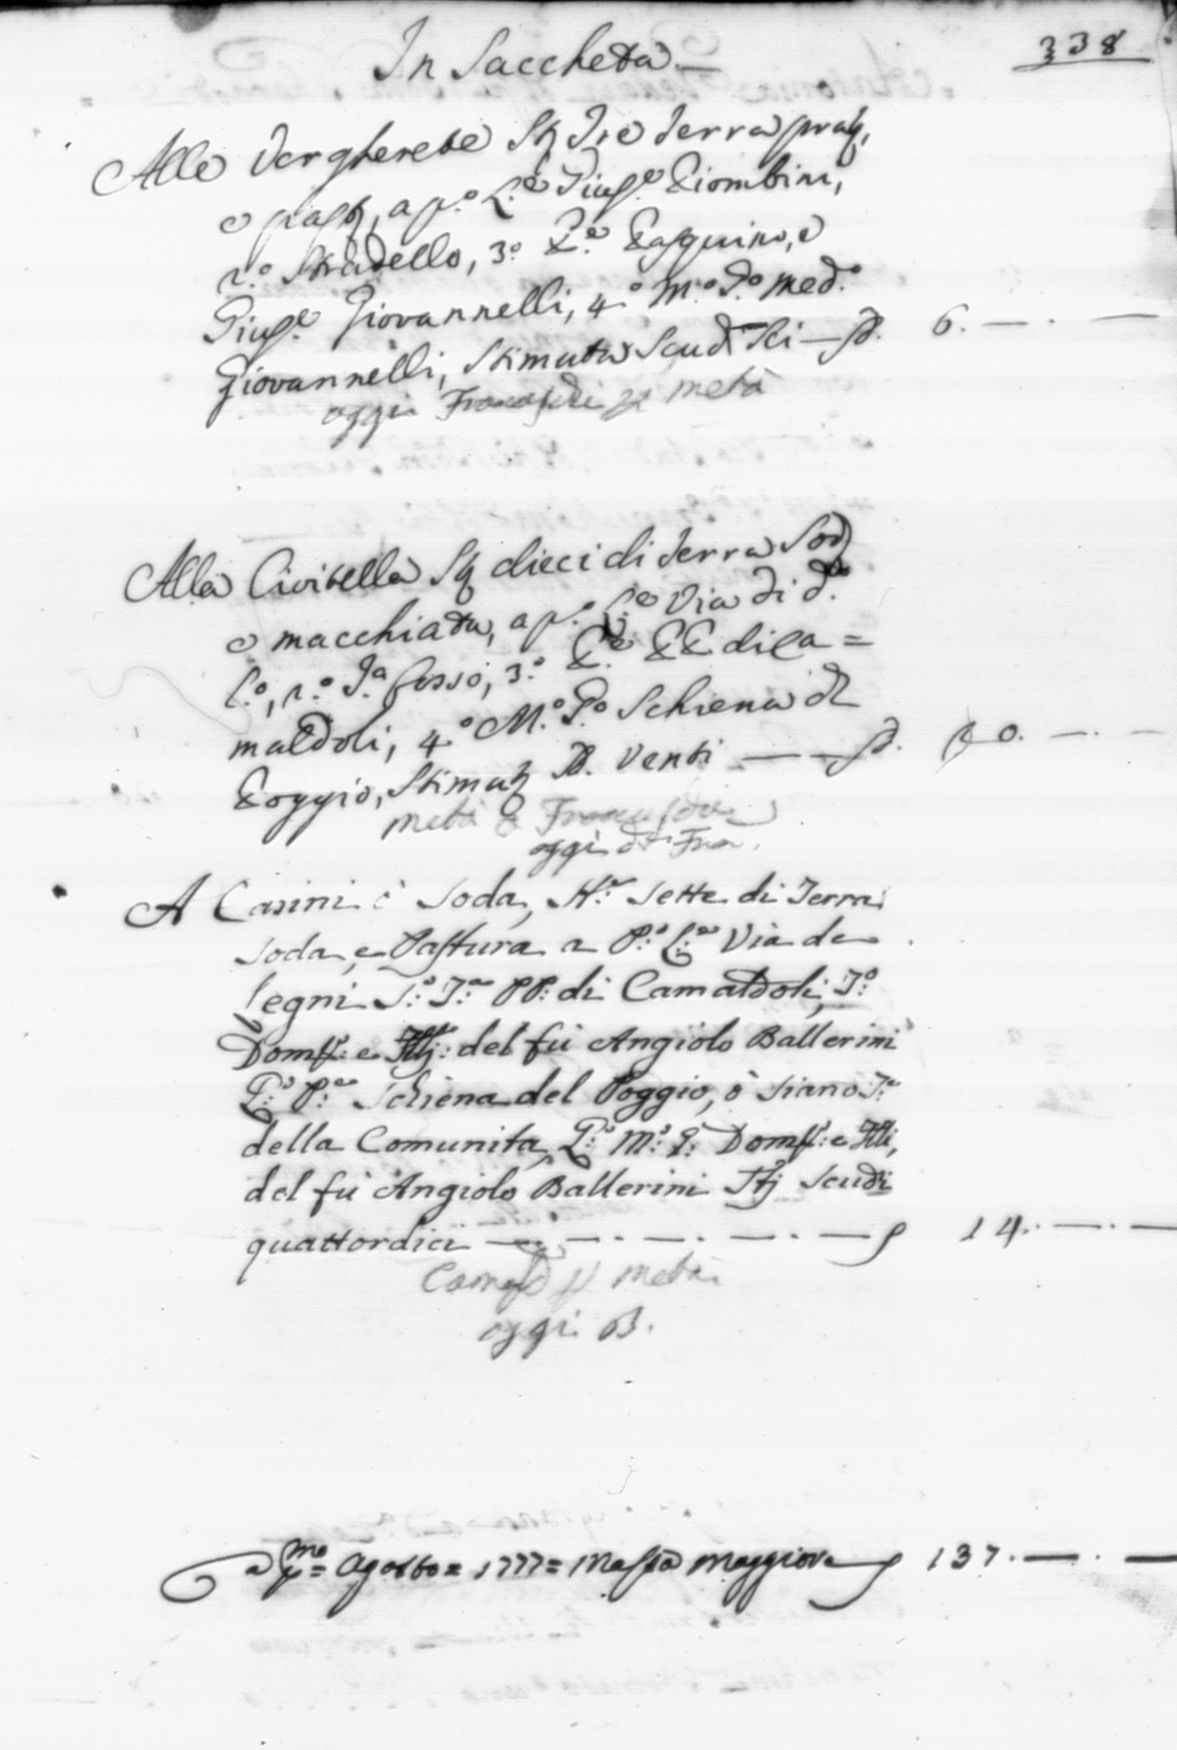 338
In Saccheta
Alle Vergherete St. Tre Terra prat.
e past., a p.o L.e Giuse. Piombini,
2.o Stradello, 3.o P.e Pasquino, e
Giuse. Giovannelli, 4.o M.o D.o Med.o
Giovannelli, Stimata Scudi Sei — 6. — . —
oggi metà
Alla Civitella St. dieci di Terra Sod.
e macchiata, a p.o L.e Via di d.o
L.o, 2.o fosso, 3.o P.e PP di Ca=
maldoli, 4.o M.o P.o Schiena di
Poggio, Stimat. Venti — 20. — . —
metà
oggi
A Casini è Soda, St.a Sette di Terra
Soda, e Pastura a P.o L.o Via de
legni S.o T.a PP: di Camaldoli, T.o
Dom.co: e Flli: del fù Angiolo Ballerini
P.o Schiena del Poggio, ò siano
della Comunita, L.o M.o Dom.co: e Flli,
del fù Angiolo Ballerini Scudi
quattordici — . — . — . — 14. — . —
metà
oggi B.
a p.mo Agosto = 1777 = Massa Maggiore 137. — . —